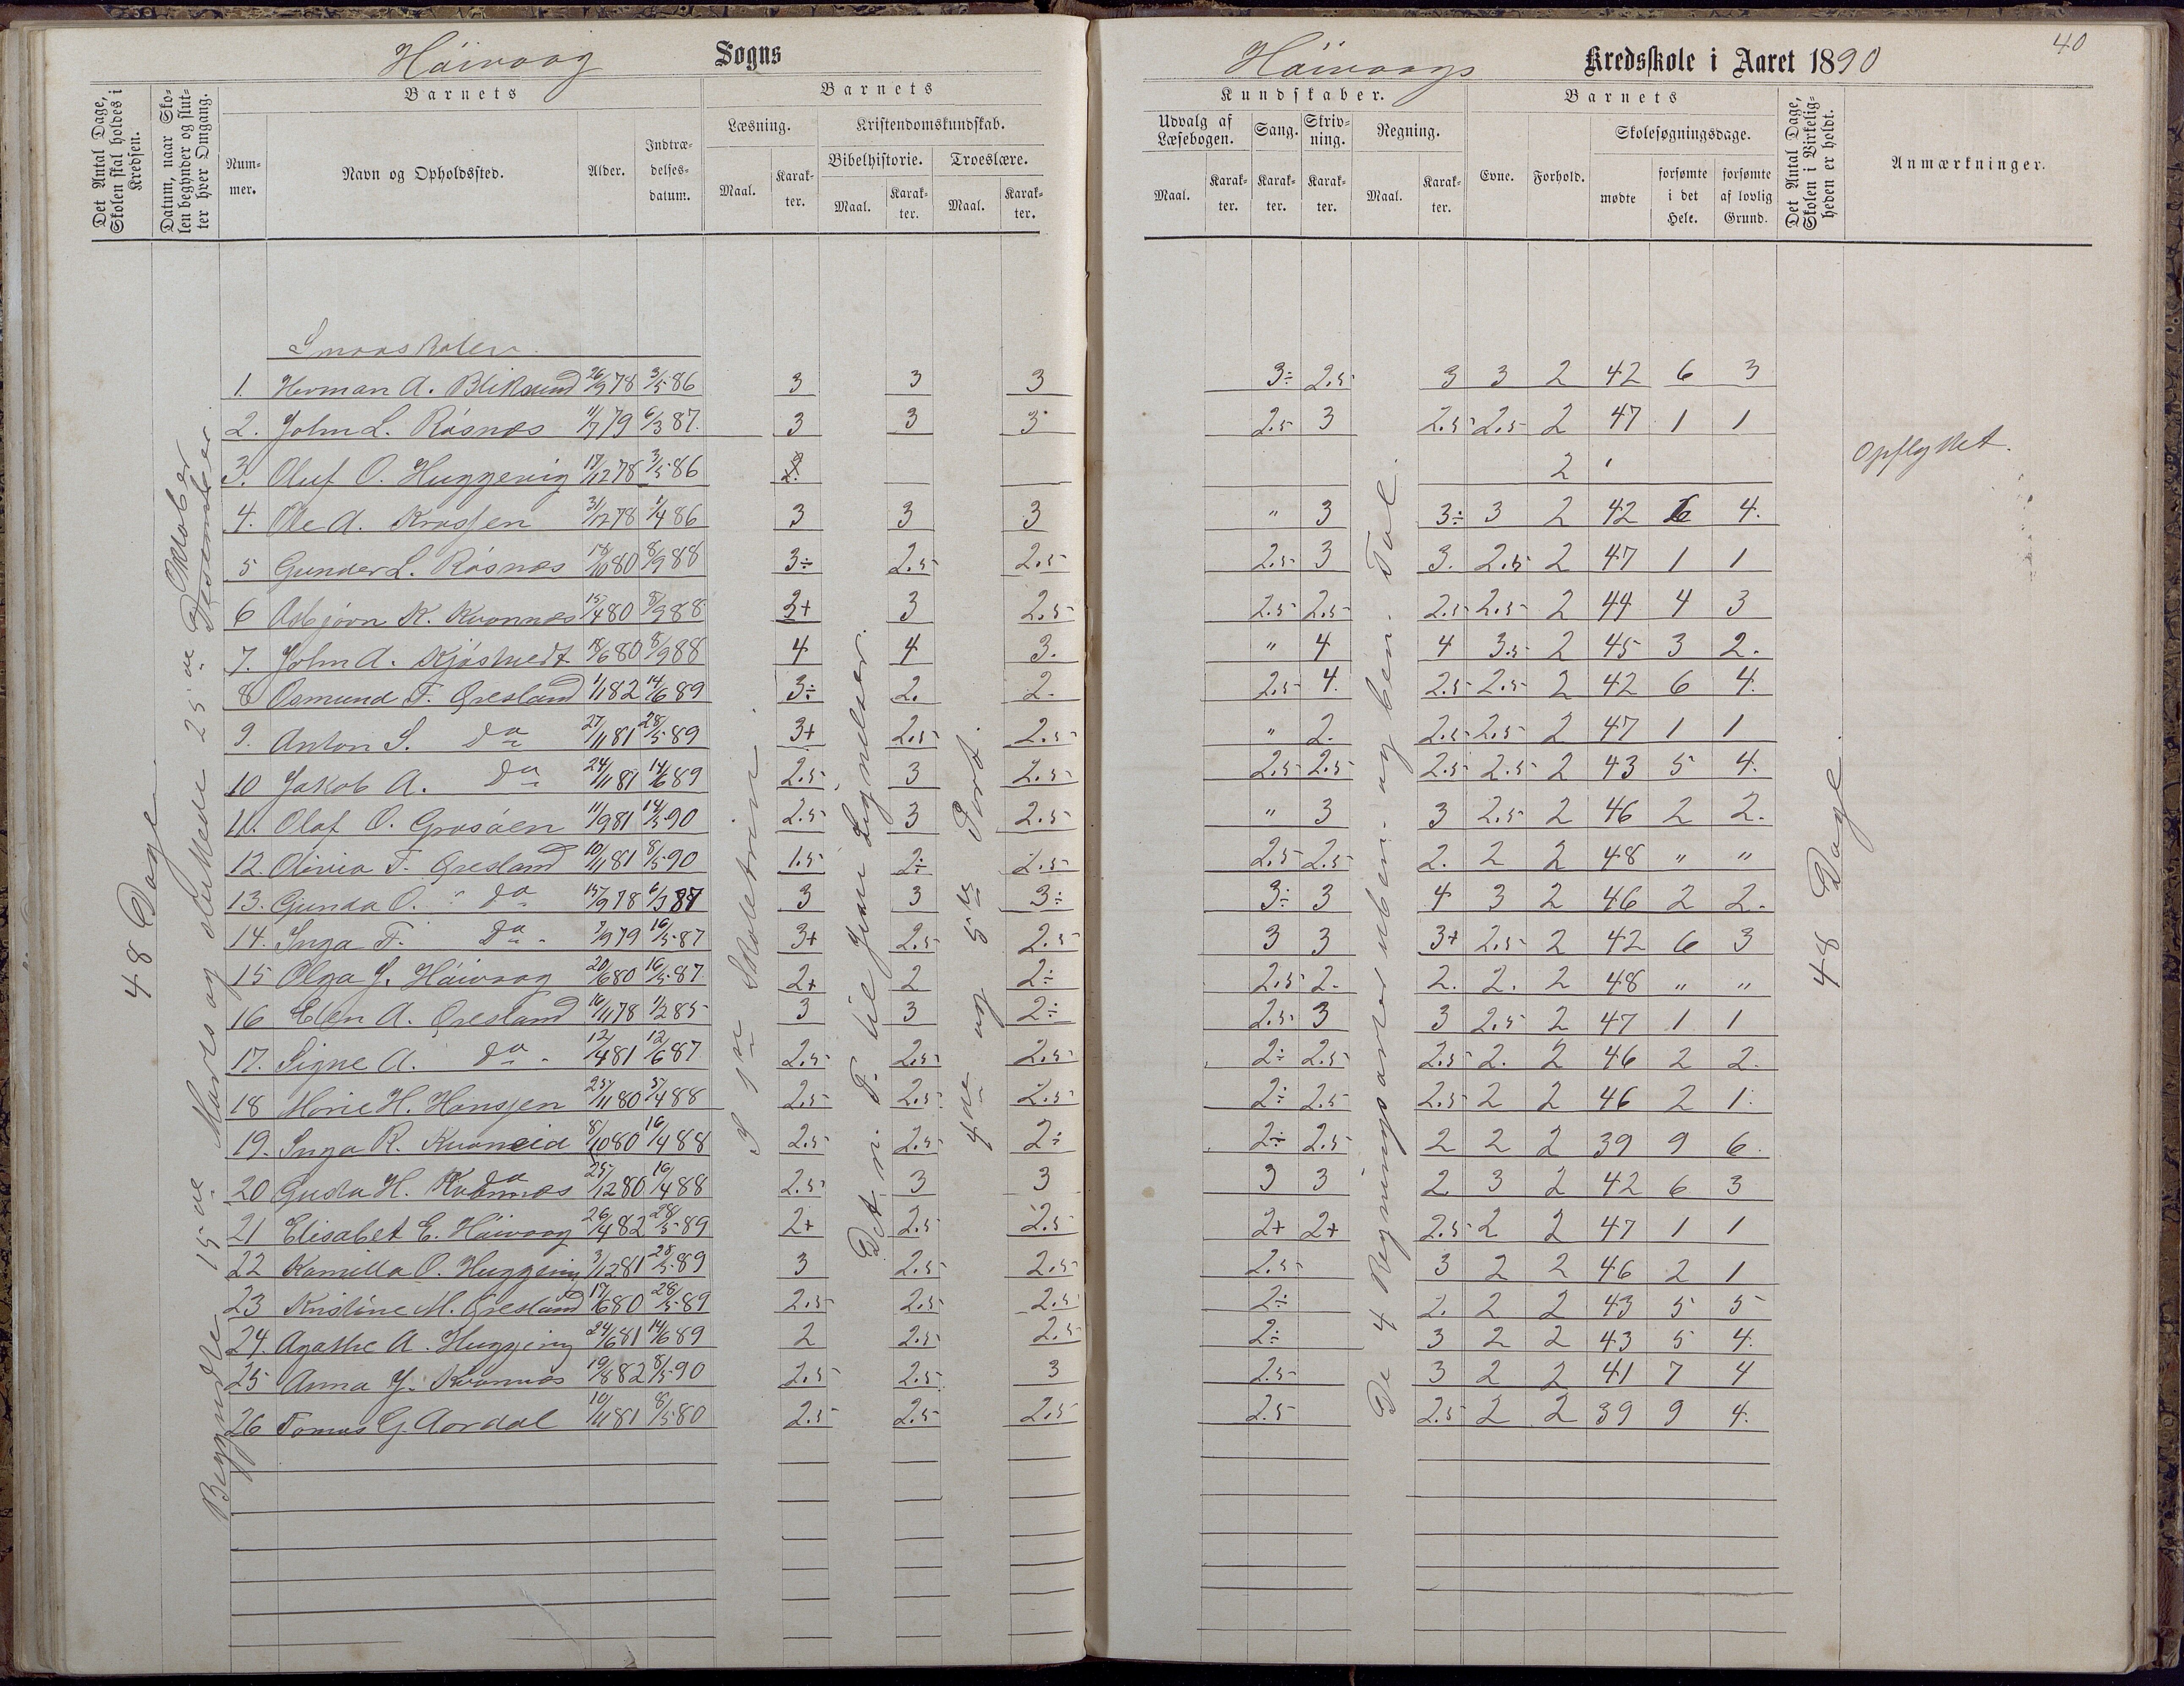 Höivaag Sogns
Höivaags Kredsskole i Aaret 1890
40
Det Antal Dage, Skolen skal holdes i Kredsen.
Datum, naar Skolen begynder og slutter hver Omgang.
Barnets
Nummer.
Navn og Opholdssted.
Alder.
Indtrædelsesdatum.
Barnets
Læsning.
Kristendomskundskab.
Bibelhistorie.
Troeslære.
Maal.
Karakter.
Maal.
Karakter.
Maal.
Karakter.
Kundskaber.
Udvalg af Læsebogen.
Sang.
Skrivning.
Regning.
Maal.
Karakter.
Karakter.
Karakter.
Maal.
Karakter.
Barnets
Evne.
Forhold.
Skolesøgningsdage.
mødte
forsømte i det Hele.
forsømte af lovlig Grund.
Det Antal Dage, Skolen i Virkeligheden er holdt.
Anmærkninger.
48 Dage
Begyndte 15de Marts og sluttede 25de Oktober
Desember
Smaaskolen.
1. Herman A. Bliksund 26/9 78 3/5 86 3 3 3 3÷ 2.5 3 3 2 42 6 3
2. John L. Råsnæs 11/7 79 6/3 87. 3 3 3 2.5 3 2.5 2.5 2 47 1 1
3. Oluf O. Huggevig 17/12 78 3/5 86 2 Opflyttet.
4. Ole A. Krossen 31/12 78 1/4 86 3 3 3 " 3 3÷ 3 2 42 6 4.
5 Gunder L. Råsnæs 18/10 80 8/9 88 3÷ 2.5 2.5 2.5 3 3. 2.5 2 47 1 1
6 Asbjørn K. Kvannæs 15/4 80 8/9 88 3+ 3 2.5 2.5 2.5 2.5 2.5 2 44 4 3
7. John A. Kjøstvedt 18/6 80 8/9 88 4 4 3. " 4 4 3.5 2 45 3 2.
8 Osmund T. Øresland 1/1 82 14/6 89 3÷ 2. 2. 2.5 4. 2.5 2.5 2 42 6 4.
9. Anton S. do 27/11 81 28/5 89 3+ 2.5 2.5 " 2. 2.5 2.5 2 47 1 1
10 Jakob A. do 24/11 81 14/6 89 2.5 3 2.5 2.5 2.5 2.5 2.5 2 43 5 4.
11. Olaf O. Grosåen 11/9 81 14/5 90 2.5 3 2.5 " 3 3 2.5 2 46 2 2.
12. Olivia T. Øresland 10/11 81 8/5 90 1.5 2÷ 2.5 2.5 2.5 2. 2 2 48 " "
13. Gunda O. do 15/9 78 6/3 87 3 3 3÷ 3÷ 3 4 3 2 46 2 2.
14. Inga T. do 7/9 79 16/5 87 3+ 2.5 2.5 3 3 3+ 2.5 2 42 6 3
15 Olga J. Höivaag 20/6 80 16/5 87. 2+ 2 2÷ 2.5 2. 2. 2. 2 48 " "
16 Elen A. Øresland 16/11 78 1/2 85 3 3 2÷ 2.5 3 3 2.5 2 47 1 1
17. Signe A. do 12/4 81 12/6 87. 2.5 2.5 2.5 2÷ 2.5 2.5 2. 2 46 2 2.
18 Marie H. Hansen 25/11 80 5/4 88 2.5 2.5 2.5 2÷ 2.5 2.5 2 2 46 2 1.
19. Inga R. Kvaneid 8/10 80 16/4 88 2.5 2.5 2÷ 2÷ 2.5 2 2 2 39 9 6.
20 Gusta H. Kvannæs 25/12 80 16/4 88 2.5 3 3 3 3 2 3 2 42 6 3
21 Elisabet E. Höivaag 26/4 82 28/5 89 2+ 2.5 2.5 2+ 2+ 2.5 2 2 47 1 1
22 Kamilla O. Huggevig 3/12 81 28/5 89 3 2.5 2.5 2.5 3 2 2 46 2 1
23 Kristine M. Øresland 17/6 80 28/5 89 2.5 2.5 2.5 2÷ 2. 2 2 43 5 5
24. Agathe A. Huggevig 24/6 81 14/6 89 2 2.5 2.5 2÷ 3 2 2 43 5 4.
25 Anna J. Kvannæs 19/8 82 8/5 90 2.5 2.5 3 2.5 3 2 2 41 7 4
26 Tomas G. Aardal 10/11 81 8/5 80 2.5 2.5 2.5 2.5 2.5 2 2 39 9 4.
I 1ste Skoletrin.
Det n. T. til Jesu Lignelser.
4de og 5te Part.
De 4 Regningsarter uben. og ben. Tal.
48 Dage